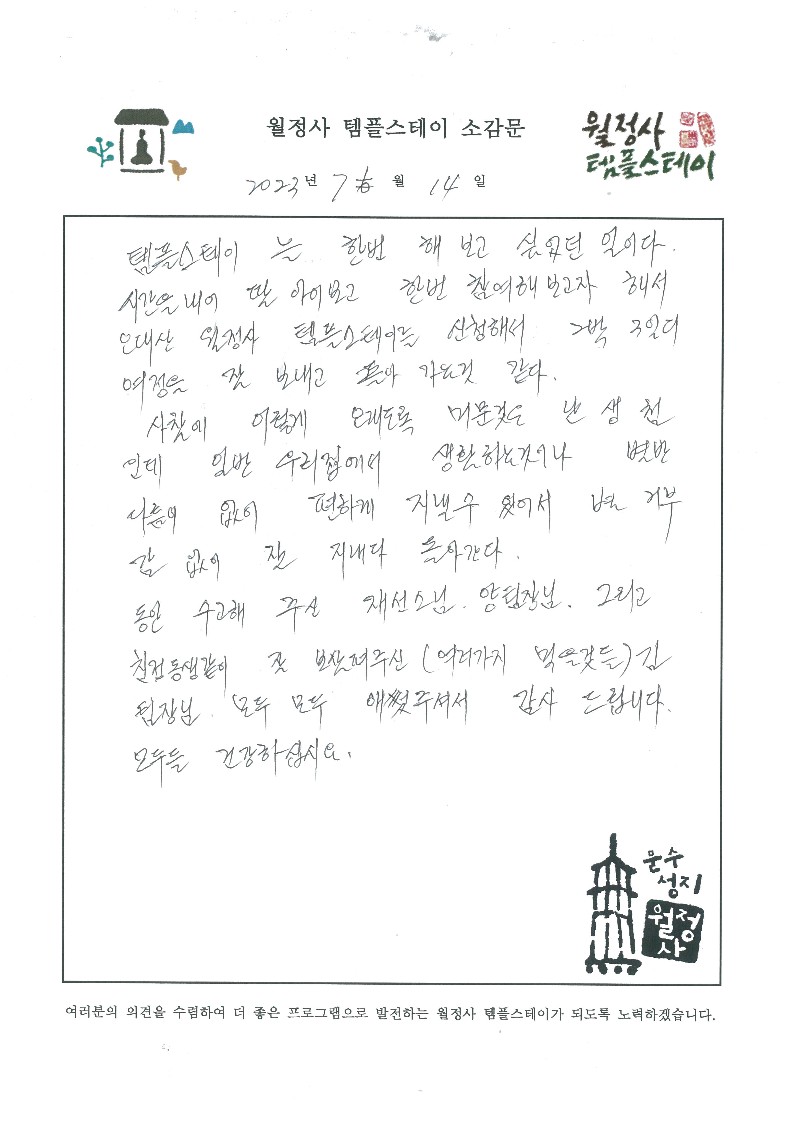 월정사 템플스테이 소감문
월정사
템플스테이
2023년 7월 14일
템플스테이 는 한번 해 보고 싶었던 일이다.
시간을 내어 딸 아이보고 한번 참여해보고자 해서
오대산 월정사 템플스테이를 신청해서 2박 3일의
여정을 잘 보내고 돌아 가는것 같다.
사찰에 이렇게 오래도록 머문것은 난생 첨
인데 일반 우리집에서 생활하는것이나 별반
다름이 없이 편하게 지낼수 있어서 별 거부
감 없이 잘 지내다 돌아간다.
동안 수고해 주신 재선스님. 양팀장님. 그리고
친정동생같이 잘 보살펴주신 (여러가지 먹을것들) 김
팀장님. 모두 모두 애써주셔서 감사 드립니다.
모두들 건강하십시요.
문수
성지
월정
사
여러분의 의견을 수렴하여 더 좋은 프로그램으로 발전하는 월정사 템플스테이가 되도록 노력하겠습니다.